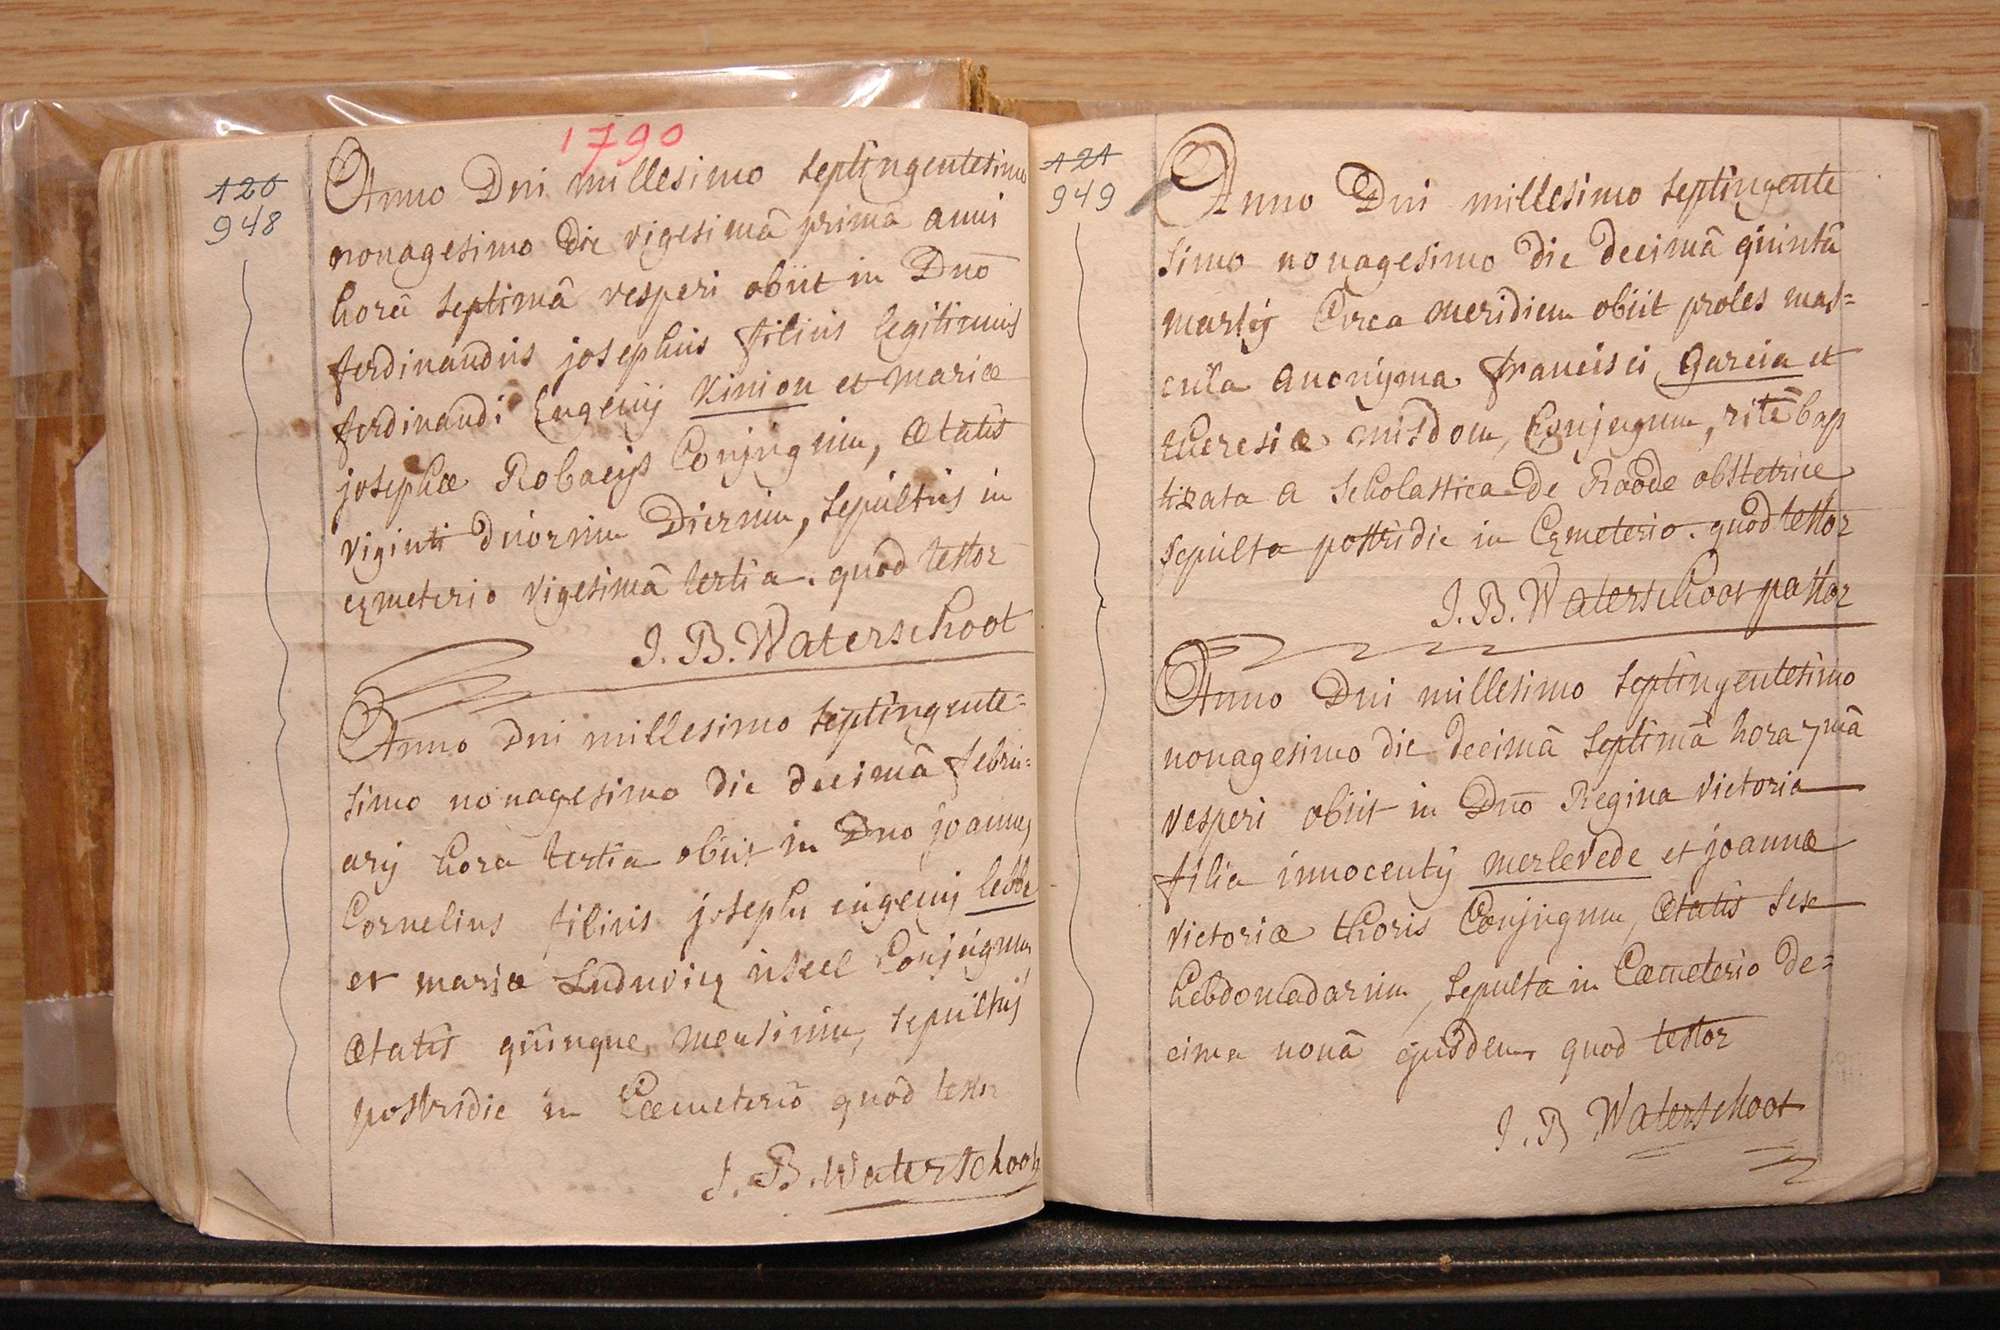 1790
120
948
Anno Dni millesimo septingentesimo
nonagesimo die vigesimâ primâ anni
horâ septimâ vesperi obiit in Dno
ferdinandus josephus filius legitimus
ferdinandi Eugenij Vinion et mariæ
josephæ Robaeys Conjugum, ætatis
viginti duorum dierum, sepultus in
cæmeterio vigesimâ tertia. quod testor
J. B. Waterschoot
Anno Dni millesimo septingente=
simo nonagesimo die decimâ febru=
arij hora tertia obiit in Dno joannes
Cornelius filius josephi eugenij lebbe
et mariæ Ludovicæ Conjugum
ætatis quinque mensium, sepultus
postridie in Cæmeterio quod testor
J. B. Waterschoot
121
949
Anno Dni millesimo septingente
simo nonagesimo die decimâ quintâ
martij Circa meridiem obiit proles mas=
cula anonyma francisci garcia et
theresiæ misdom, Conjugum, ritè bap
tizata a scholastica de Raode obstetrice
sepulta postridie in Cæmeterio. quod testor
J. B. Waterschoot pastor
Anno Dni millesimo septingentesimo
nonagesimo die decimâ septimâ hora 7mâ
vesperi obiit in Dno Regina victoria
filia innocentij merlevede et joannæ
victoriæ thoris Conjugum, ætatis sex
hebdomadarum, sepulta in Cæmeterio de=
cima nonâ ejusdem quod testor
J. B Waterschoot